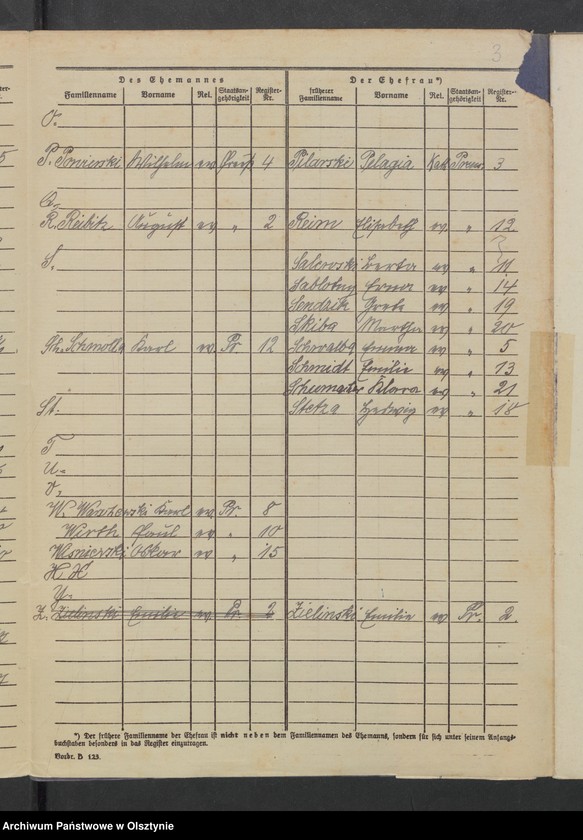 3
Des Ehemannes Der Ehefrau*)
Familienname Vorname Rel. Staatsan-gehörigkeit Register-Nr. früherer Familienname Vorname Rel. Staatsan-gehörigkeit Register-Nr.
O.
P. Wilhelm ev Preuß 4 Pilarski Pelagia Kath Preuss. 3
Q.
R. Reibitz August ev " 2 Reim Elisabeth ev. " 12
S. Salewski Berta ev " 11
Sablotny Erna ev " 14
Sendzik Grete ev " 19
Skiba Martha ev " 20
Sch. Schmolla Karl ev. Pr 12 Schwalba Emma ev " 5
Schmidt Emilie ev " 13
Schumacher Klara ev " 21
St. Hedwig ev " 18
T
U.
V.
W. Karl ev Pr. 8
Wirth Paul ev " 10
Oskar ev " 15
X
Y.
Z. Zielinski Emilie ev Pr. 2 Zielinski Emilie ev Pr. 2.
*) Der frühere Familienname der Ehefrau ist nicht neben dem Familiennamen des Ehemanns, sondern für sich unter seinem Anfangs-
buchstaben besonders in das Register einzutragen.
Vordr. D 123.
Archiwum Państwowe w Olsztynie